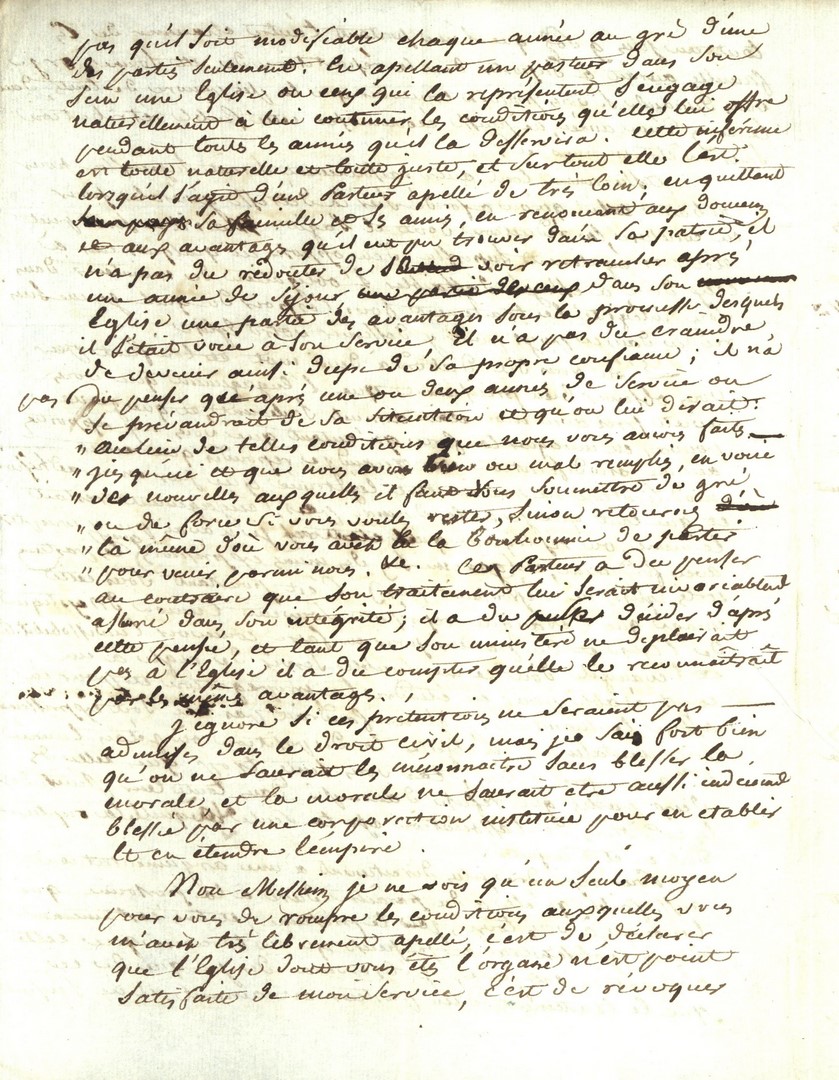 pas qu'il soit modifiable chaque année au gré d'une
des partis seulement. En apellant un pasteur dans son
sein une Eglise ou ceux qui la représentent s'engage
naturellement à lui continuer les conditions qu'elle lui offre
pendant touts les années qu'il la desservira. Cette inférence
est toute naturelle et toute juste, et surtout elle l'est.
lorsqu'il s'agit d'un Pasteur apellé de très loin; en quittant
sa famille et ses amis, en renonçant aux douceurs
et aux avantages qu'il eut pu trouver dans sa patrie, il
n'a pas du redouter de voir retrancher après
une année de séjour une partie de ceux dans son
Eglise une partie des avantages sous la promesse desquels
il s'était voué à son service. Il n'a pas du craindre
de devenir ainsi dupe de sa propre confiance; il n'a
pas du penser que après une ou deux années de service on
se prévaudrait de sa situation et qu'on lui dirait:
" Au lieu de telles conditions que nous vous avions faits
" jusqu'ici et que nous avons bien ou mal remplies, en voici
" des nouvelles auxquelles il faut vous soumettre de gré
" ou de force si vous voulez rester, sinon retournez
" là même d'où vous avez eu la bonhommie de partir
" pour venir parmi nous. &c. Ce Pasteur a du penser
au contraire que son traitement lui serait invariablemt
assuré dans son intégrité; il a du décider d'après
cette pensée, et tant que son ministère ne déplairait
pas à l'Eglise il a du compter qu'elle le reconnaîtrait
par les mêmes avantages.
J'ignore si ces prétentions ne seraient pas
admises dans le droit civil, mais je sais fort bien
qu'on ne saurait les méconnaitre sans blesser la
morale, et la morale ne saurait etre aussi indecemmt
blessée par une corporation instituée pour en etablir
et en étendre l'empire.
Non Messieurs je ne vois qu'un seul moyen
pour vous de rompre les conditions auxquelles vous
m'avez très librement apellé, c'est de déclarer
que l'Eglise dont vous êtes l'organe n'est point
satisfaite de mon service, c'est de révoquer